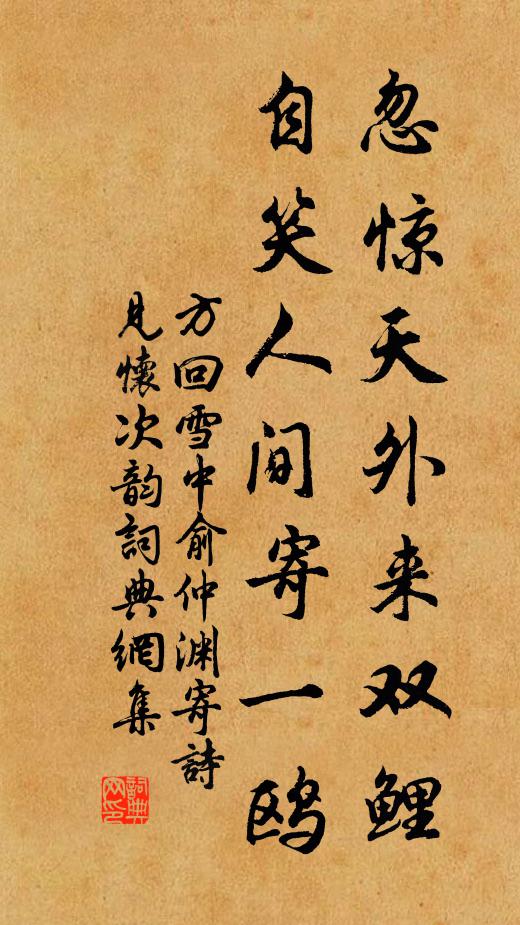 忽惊天外来双鲤
自笑人间寄一鸥
方回雪中俞仲渊寄詩
見懷次韵詞典網集
詞典网印